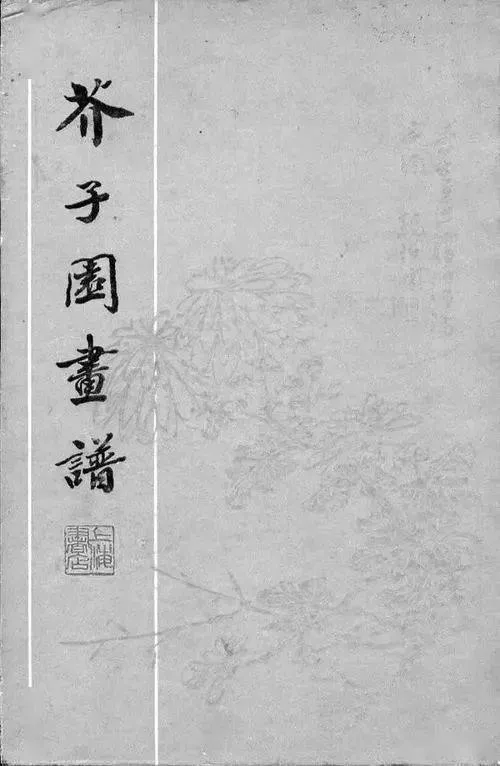 芥子園畫譜
上海書店